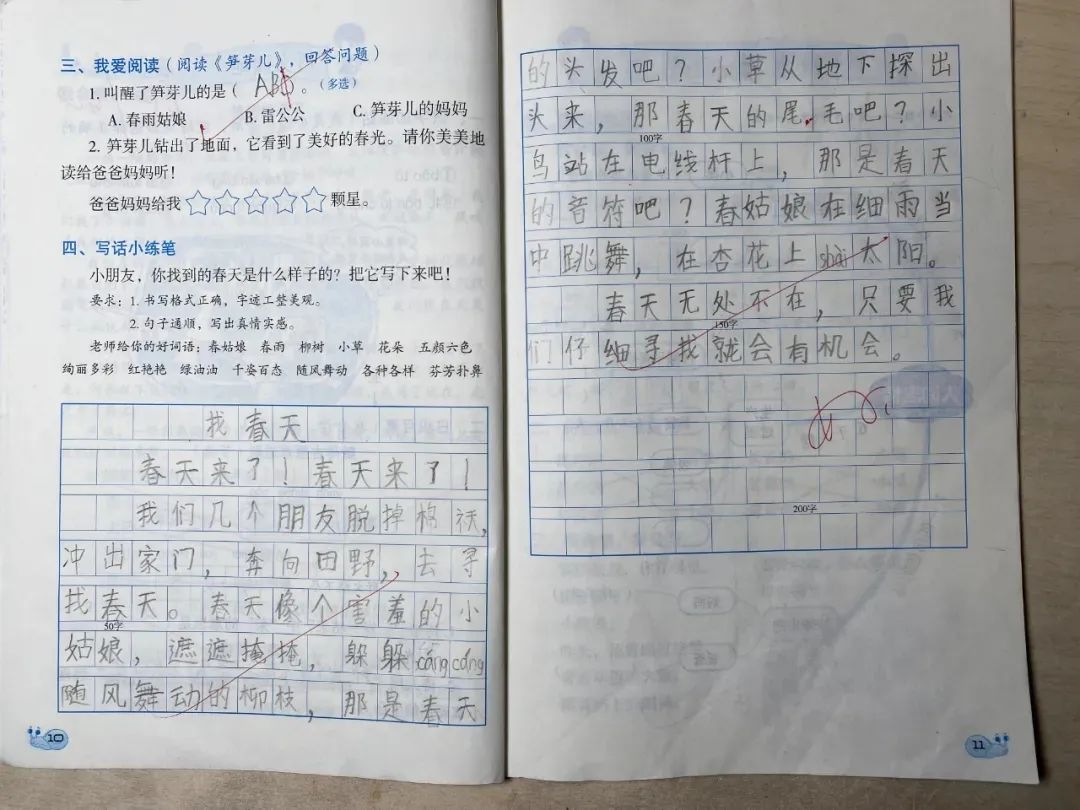 三、我爱阅读（阅读《笋芽儿》，回答问题）
1. 叫醒了笋芽儿的是（ AB ）。（多选）
A. 春雨姑娘 B. 雷公公 C. 笋芽儿的妈妈
2. 笋芽儿钻出了地面，它看到了美好的春光。请你美美地
读给爸爸妈妈听！
爸爸妈妈给我☆☆☆☆☆颗星。
四、写话小练笔
小朋友，你找到的春天是什么样子的？把它写下来吧！
要求：1. 书写格式正确，字迹工整美观。
2. 句子通顺，写出真情实感。
老师给你的好词语：春姑娘 春雨 柳树 小草 花朵 五颜六色
绚丽多彩 红艳艳 绿油油 千姿百态 随风舞动 各种各样 芬芳扑鼻
找春天
春天来了！春天来了！
我们几个朋友脱掉棉袄，
冲出家门，奔向田野，去寻
找春天。春天像个害羞的小
50字
姑娘，遮遮掩掩，躲躲cáng cáng
随风舞动的柳枝，那是春天
10
的头发吧？小草从地下探出
头来，那春天的尾毛吧？小
100字
鸟站在电线杆上，那是春天
的音符吧？春姑娘在细雨当
中跳舞，在杏花上shài太阳。
春天无处不在，只要我
150字
们仔细寻找就会有机会。
200字
11